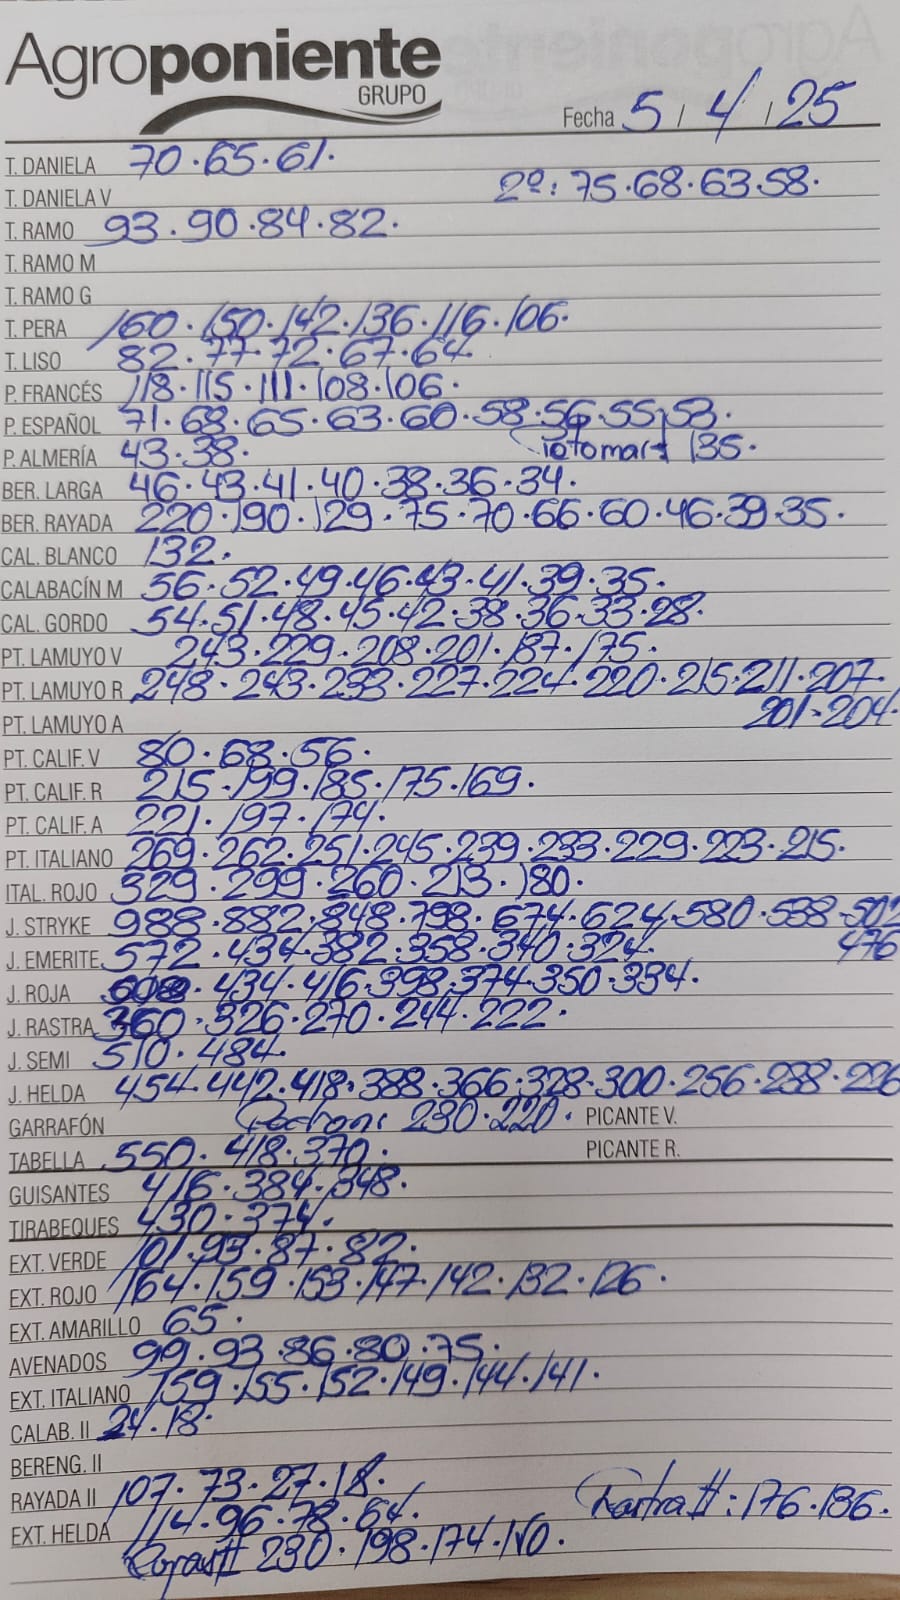 Agroponiente
GRUPO
Fecha 5 / 4 / 25
T. DANIELA 70.65.61.
T. DANIELA V 2º: 75.68.63.58.
T. RAMO 93.90.84.82.
T. RAMO M
T. RAMO G
T. PERA 160.150.142.136.116.106.
T. LISO 82.77.72.67.64.
P. FRANCÉS 118.115.111.108.106.
P. ESPAÑOL 71.68.65.63.60.58.56.55.53.
P. ALMERÍA 43.38. 135.
BER. LARGA 46.43.41.40.38.36.34.
BER. RAYADA 220.190.129.75.70.66.60.46.39.35.
CAL. BLANCO 132.
CALABACÍN M 56.52.49.46.43.41.39.35.
CAL. GORDO 54.51.48.45.42.38.36.33.28.
PT. LAMUYO V 243.229.208.201.187.175.
PT. LAMUYO R 248.243.233.227.224.220.215.211.207.
PT. LAMUYO A 201.204.
PT. CALIF. V 80.68.56.
PT. CALIF. R 215.199.185.175.169.
PT. CALIF. A 221.197.174.
PT. ITALIANO 269.262.251.245.239.233.229.223.215.
ITAL. ROJO 329.299.260.213.180.
J. STRYKE 988.882.848.798.674.624.580.538.502
J. EMERITE 572.434.382.358.340.324. 476
J. ROJA 434.416.398.374.350.334.
J. RASTRA 360.326.270.244.222.
J. SEMI 510.484.
J. HELDA 454.442.418.388.366.328.300.256.238.226
GARRAFÓN Padron: 230.220. PICANTE V.
TABELLA 550.418.370. PICANTE R.
GUISANTES 416.384.348.
TIRABEQUES 430.374.
EXT. VERDE 101.93.87.82.
EXT. ROJO 164.159.153.147.142.132.126.
EXT. AMARILLO 65.
AVENADOS 99.93.86.80.75.
EXT. ITALIANO 159.155.152.149.144.141.
CALAB. II 24.18.
BERENG. II
RAYADA II 107.73.27.18. Rastra II: 176.136.
EXT. HELDA 114.96.78.64.
Rojas II 230.198.174.